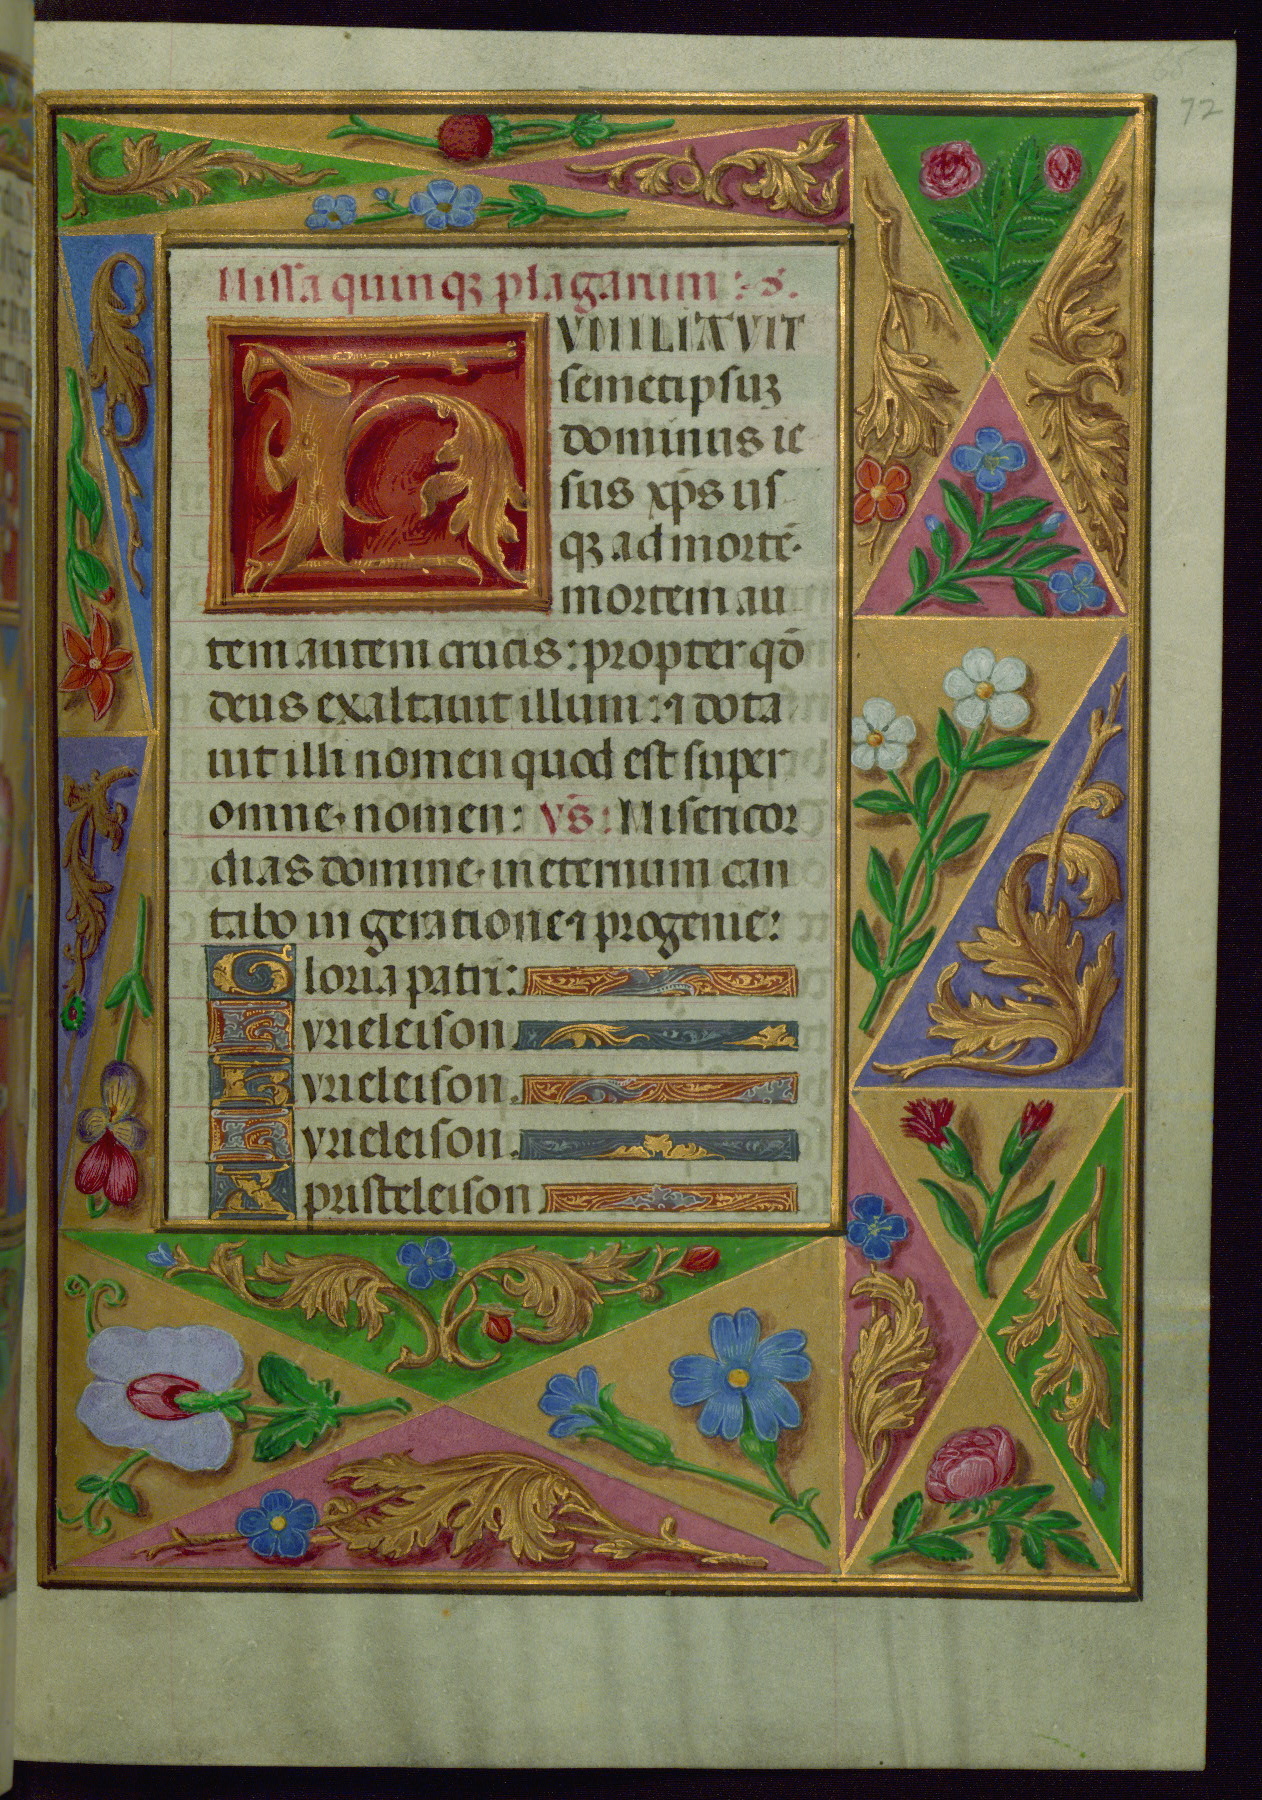 72
Missa quinqꝫ plagarum : s.
HVMILIAVIT
semetipsuꝫ
dominus ie
sus xp̄s us
qꝫ ad mortē.
mortem au
tem autem crucis: propter qd̄
deus exaltauit illum: ⁊ dona
uit illi nomen quod est super
omne nomen: vs̄: Misericor
dias domine in eternum can
tabo in gēratione ⁊ progenie:
Gloria patri:
Kyrieleison.
Kyrieleison.
Kyrieleison.
Xpristeleison.